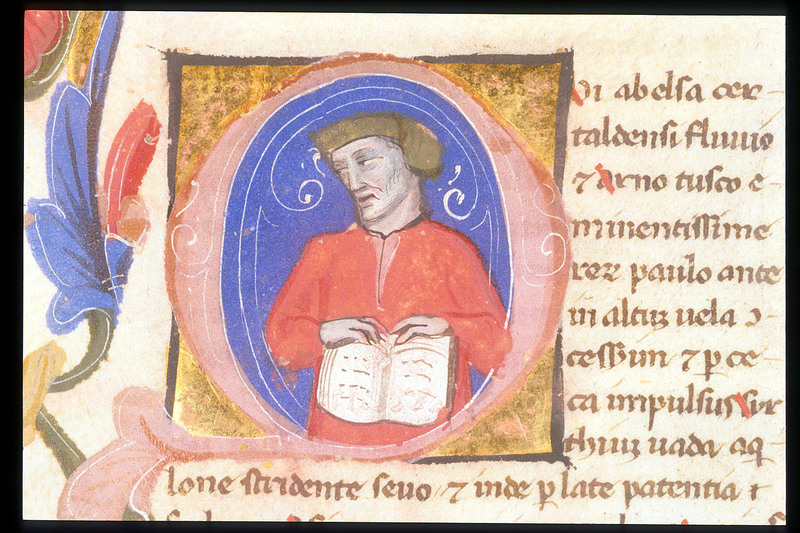 Di abelsa cer
taldensi fluuio
⁊ Arno tusco e
minentissime
rex paulo ante
in altuꝫ uela ꝯ
cesserim ⁊ ꝑ ce
ca impulsus Sir
thiuꝫ uada aq
lone stridente seuo ⁊ inde ꝑ late patentia